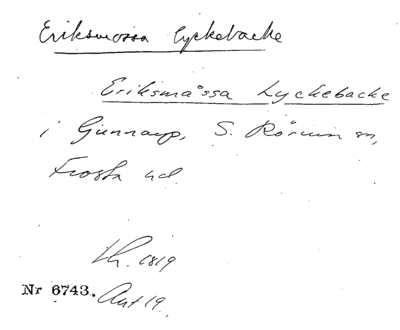 Eriksmossa Lyckebacke
Eriksmåssa Lyckebacke
i Gunnarp, S. Rörum sn,
Frosta hd.
Lh. 1819
Nr 6743. Akt 19.